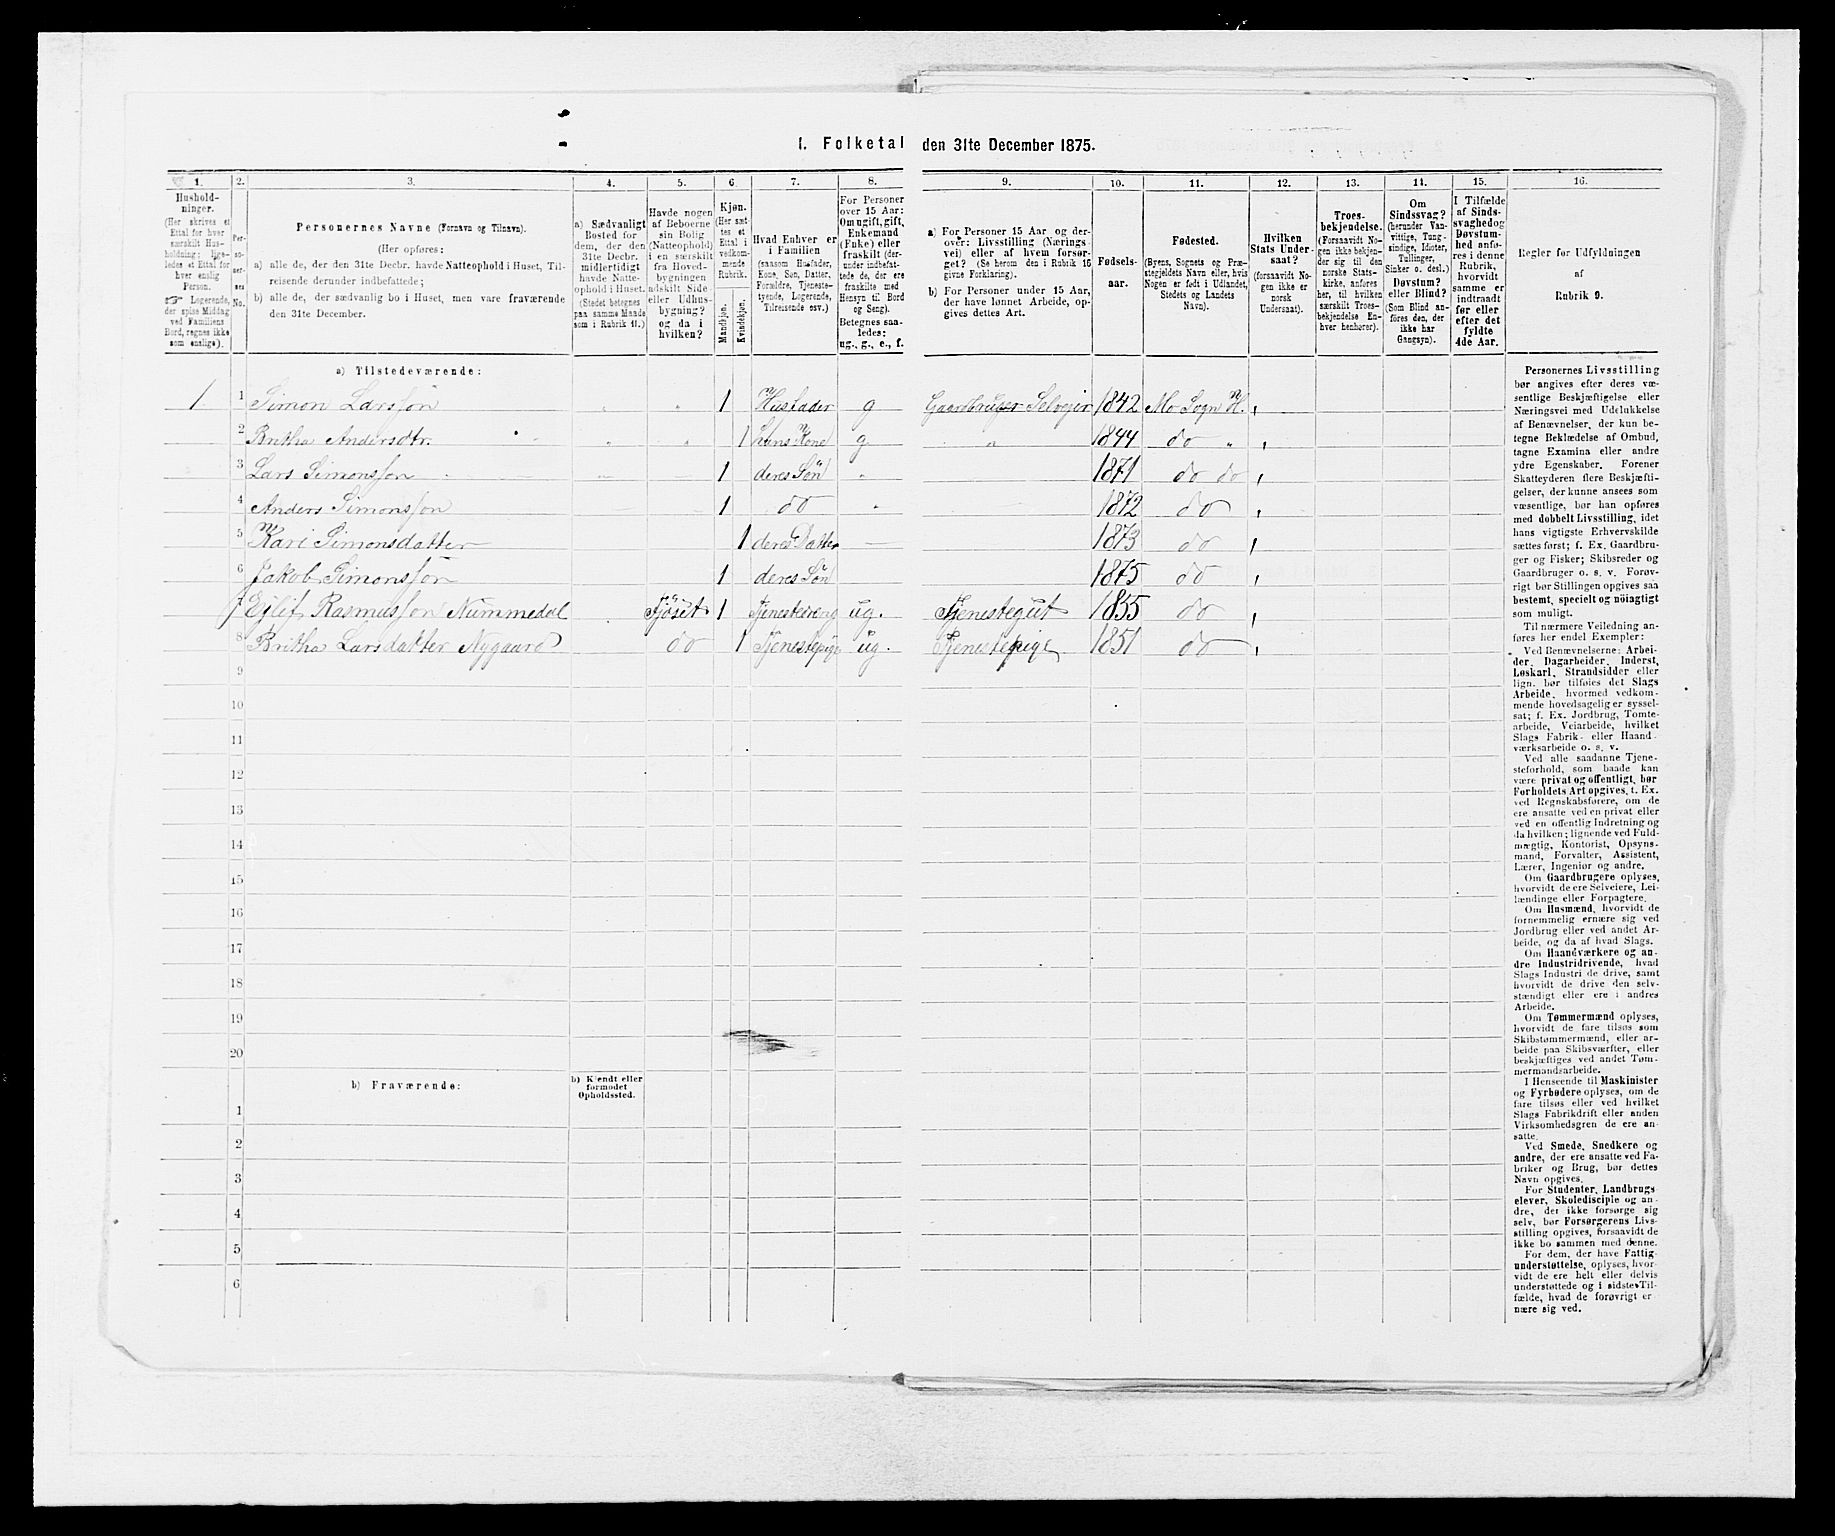 I. Folketal den 31te December 1875.
1. 2. 3. 4. 5. 6. 7. 8. 9. 10. 11. 12. 13. 14. 15. 16.
Hushold-
ninger.
(Her skrives et
Ettal for hver
særskilt Hus-
holdning; lige-
ledes et Ettal for
hver enslig
Person.
☞ Logerende,
der spise Middag
ved Familiens
Bord, regnes ikke
som enslige).
Per-
so-
ner-
nes
No.
Personernes Navne (Fornavn og Tilnavn).
(Her opføres:
a) alle de, der den 31te Decbr. havde Natteophold i Huset, Til-
reisende derunder indbefattede;
b) alle de, der sædvanlig bo i Huset, men vare fraværende
den 31te December.
a) Sædvanligt
Bosted for
dem, der den
31te Decbr.
midlertidigt
havde Natte-
ophold i Huset.
(Stedet betegnes
paa samme Maade
som i Rubrik 11.)
Havde nogen
af Beboerne
sin Bolig
(Natteophold)
i en særskilt
fra Hoved-
bygningen
adskilt Side-
eller Udhus-
bygning?
og da i
hvilken?
Kjøn.
(Her sæt-
tes et
Ettal i
vedkom-
mende
Rubrik.
Mandkjøn.
Kvindekjøn.
Hvad Enhver er
i Familien
(saasom Husfader,
Kone, Søn, Datter,
Forældre, Tjeneste-
tyende, Logerende,
Tilreisende osv.)
For Personer
over 15 Aar:
Om ugift, gift,
Enkemand
(Enke) eller
fraskilt (der-
under indbefat-
tede de, der ere
fraskilte med
Hensyn til Bord
og Seng).
Betegnes saa-
ledes:
ug., g., e., f.
a) For Personer 15 Aar og der-
over: Livsstilling (Nærings-
vei) eller af hvem forsør-
get? (Se herom den i Rubrik 16
givne Forklaring).
b) For Personer under 15 Aar,
der have lønnet Arbeide, op-
gives dettes Art.
Fødsels-
aar.
Fødested.
(Byens, Sognets og Præ-
stegjeldets Navn eller, hvis
Nogen er født i Udlandet,
Stedets og Landets
Navn).
Hvilken
Stats Under-
saat?
(forsaavidt No-
gen ikke er
norsk
Undersaat).
Troes-
bekjendelse.
(Forsaavidt No-
gen ikke bekjen-
der sig til den
norske Stats-
kirke, anføres
her, til hvilken
særskilt Troes-
bekjendelse En-
hver henhører).
Om
Sindssvag?
(herunder Van-
vittige, Tung-
sindige, Idioter,
Tullinger,
Sinker o. desl.)
Døvstum?
eller Blind?
(Som Blind an-
føres den, der
ikke har
Gangsyn).
I Tilfælde
af Sinds-
svaghed og
Døvstum-
hed anfø-
res i denne
Rubrik,
hvorvidt
samme er
indtraadt
før eller
efter det
fyldte
4de Aar.
Regler for Udfyldningen
af
Rubrik 9.
a) Tilstedeværende:
1 1 Simon Larsson 1 Husfader g Gaardbruger Selveier 1842 Mo Sogn H.
2 Britha Andersdtr. 1 hans Kone g 1844 do
3 Lars Simonsson 1 deres Søn 1871 do do
4 Anders Simonsson 1 do 1872 do
5 Kari Simonsdatter 1 deres Datter 1873 do
6 Jakob Simonsson 1 deres Søn 1875 do
7 Eylif Rasmusson Nummedal Fjöset 1 ug. Tjenestegut 1855 do
8 Britha Larsdatter Nygaard do 1 Tjenestepige ug. Tjenestepige 1851 do
9
10
11
12
13
14
15
16
17
18
19
20
b) Fraværende:
b) Kjendt eller
formodet
Opholdssted.
1
2
3
4
5
6
Personernes Livsstilling
bør angives efter deres væ-
sentlige Beskjæftigelse eller
Næringsvei med Udelukkelse
af Benævnelser, der kun be-
tegne Beklædelse af Ombud,
tagne Examina eller andre
ydre Egenskaber. Forener
Skatteyderen flere Beskjæfti-
gelser, der kunne ansees som
væsentlige, bør han opføres
med dobbelt Livsstilling, idet
hans vigtigste Erhvervskilde
sættes først; f. Ex. Gaardbru-
ger og Fisker; Skibsreder og
Gaardbruger o. s. v. Forøv-
rigt bør Stillingen opgives saa
bestemt, specielt og nöiagtigt
som muligt.
Til nærmere Veiledning an-
føres her endel Exempler:
Ved Benævnelserne: Arbei-
der, Dagarbeider, Inderst,
Løskarl, Strandsidder eller
lign. bør tilføies det Slags
Arbeide, hvormed vedkom-
mende hovedsagelig er syssel-
sat; f. Ex. Jordbrug, Tomte-
arbeide, Veiarbeide, hvilket
Slags Fabrik- eller Haand-
værksarbeide o. s. v.
Ved alle saadanne Tjene-
steforhold, som baade kan
være privat og offentligt, bør
Forholdets Art opgives, t. Ex.
ved Regnskabsførere, om de
ere ansatte ved en privat eller
ved en offentlig Indretning og
da hvilken; lignende ved Fuld-
mægtig, Kontorist, Opsyns-
mand, Forvalter, Assistent,
Lærer, Ingeniør og andre.
Om Gaardbrugere oplyses,
hvorvidt de ere Selveiere, Lei-
lændinge eller Forpagtere.
Om Husmænd, hvorvidt de
fornemmelig ernære sig ved
Jordbrug eller ved andet Ar-
beide, og da af hvad Slags.
Om Haandværkere og an-
dre Industridrivende, hvad
Slags Industri de drive, samt
hvorvidt de drive den selv-
stændigt eller ere i andres
Arbeide.
Om Tømmermænd oplyses,
hvorvidt de fare tilsøs som
Skibstømmermænd, eller ar-
beide paa Skibsværfter, eller
beskjæftiges ved andet Tøm-
mermandsarbeide.
I Henseende til Maskinister
og Fyrbødere oplyses, om de
fare tilsøs eller ved hvilket
Slags Fabrikdrift eller anden
Virksomhedsgren de ere an-
satte.
Ved Smede, Snedkere og
andre, der ere ansatte ved Fa-
briker og Brug, bør dettes
Navn opgives.
For Studenter, Landbrugs-
elever, Skoledisciple og an-
dre, der ikke forsørge sig
selv, bør Forsørgerens Livs-
stilling opgives, forsaavidt de
ikke bo sammen med denne.
For dem, der have Fattig-
understøttelse, oplyses, hvor-
vidt de ere helt eller delvis
understøttede og i sidste Til-
fælde, hvad de forøvrigt er-
nære sig ved.